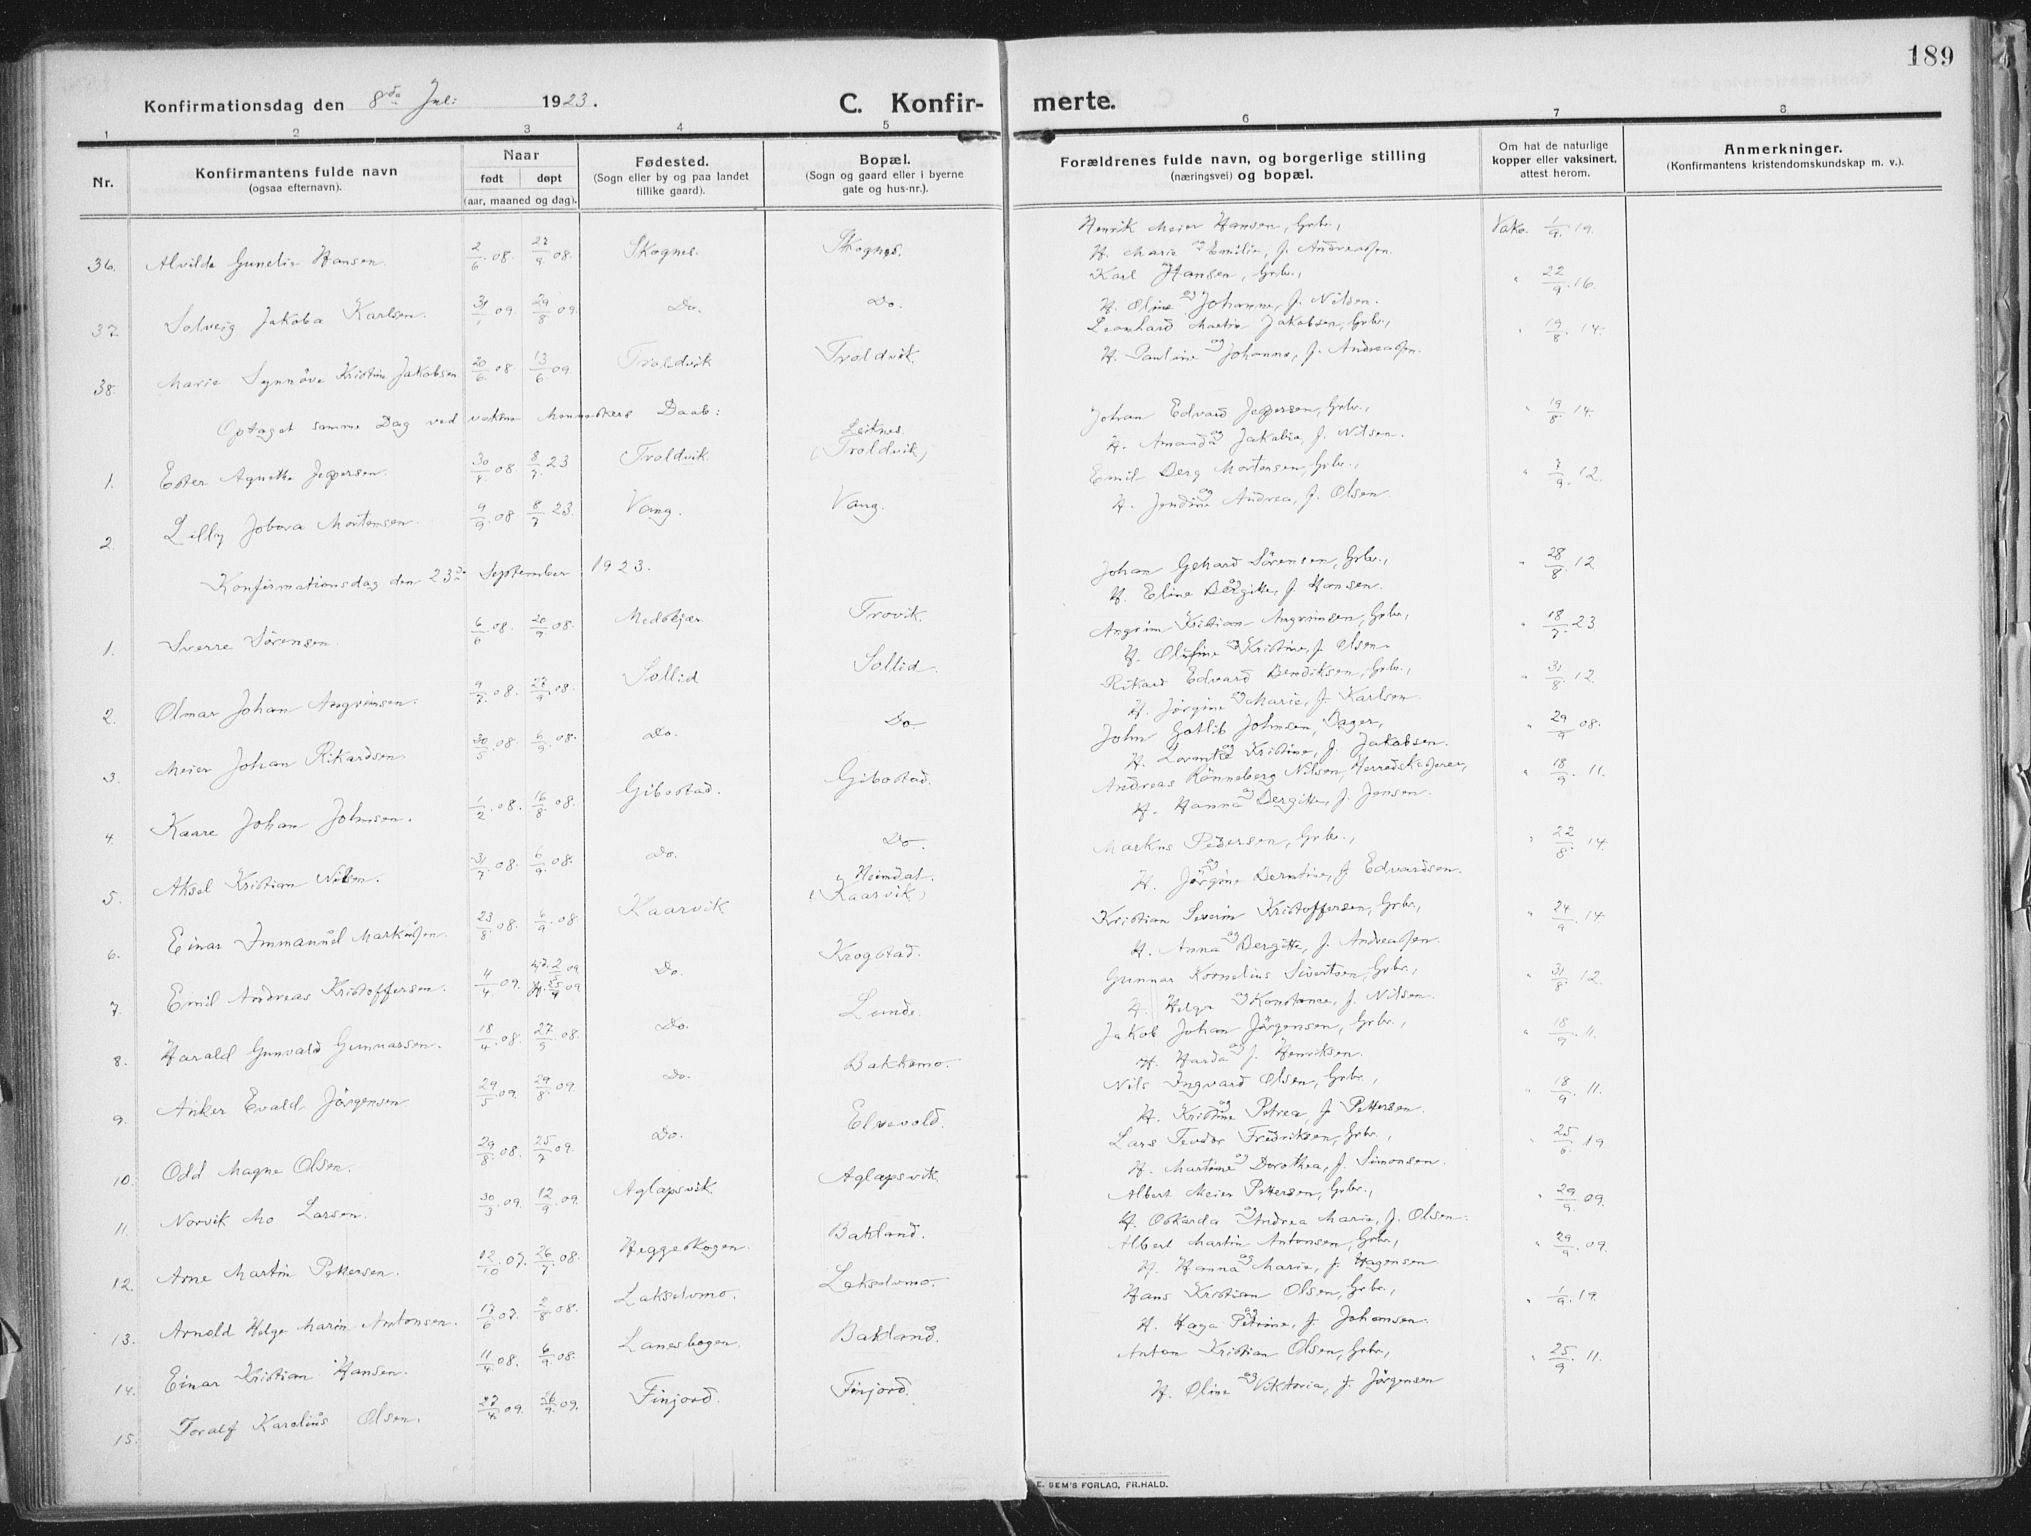 189
Konfirmationsdag den 8de Juli 1923.
C. Konfir- merte.
1 2 3 4 5 6 7 8
Nr.
Konfirmantens fulde navn
(ogsaa efternavn).
Naar
født døpt
(aar, maaned og dag).
Fødested.
(Sogn eller by og paa landet
tillike gaard).
Bopæl.
(Sogn og gaard eller i byerne
gate og hus-nr.).
Forældrenes fulde navn, og borgerlige stilling
(næringsvei) og bopæl.
Om hat de naturlige
kopper eller vaksinert,
attest herom.
Anmerkninger.
(Konfirmantens kristendomskundskap m. v.).
36. Alvilde Gunelie Hansen. 2/6.08. 27/9.08. Skognes. Skognes. Henrik Meier Hansen, Grbr.,
og H. Marie Emilie, f. Andreassen. Vaks. 1/9.19.
37. Solveig Jakoba Karlsen. 31/1.09. 29/8.09. Do. Do. Karl Hansen, Grbr.,
og H. Oline Johanne, f. Nilsen. " 22/9.16.
38. Marie Synnöve Kristine Jakobsen 20/6.08. 13/6.09. Troldvik Troldvik. Leonhard Martin Jakobsen, Grbr.,
og H. Pauline Johanna, f. Andreassen. " 19/8.14.
Optaget samme Dag ved voksne Menneskers Daab:
1. Ester Agnethe Jeppersen. 30/4.08. 8/7.23 Troldvik. Leiknes.
(Troldvik) Johan Edvard Jeppersen, Grbr.,
og H. Amanda Jakobie, f. Nilsen. " 19/8.14.
2. Lilly Jobora Mortensen. 9/9.08 8/7.23. Vang. Vang. Emil Berg Mortensen, Grbr.,
og H. Jendine Andrea, f. Olsen. " 7/9.12.
Konfirmationsdag den 23de September 1923.
1. Sverre Sörensen. 6/6.08. 20/9.08. Medbyjær. Trovik. Johan Gehard Sörensen, Grbr.,
og H. Eline Bergitte, f. Hansen. " 28/8.12
2. Olmar Johan Angrimsen. 9/7.08. 27/9.08. Sollid Sollid. Angrim Kristian Angrimsen, Grbr.,
og H. Olufine Kristine, f. Olsen. " 18/7.23
3. Meier Johan Rikardsen 30/5.08. 6/9.08. Do. Do. Rikard Edvard Bendiksen, Grbr.,
og H. Jørgine Marie, f. Karlsen. " 31/8.12.
4. Kaare Johan Johnsen. 1/2.08. 16/8.08. Gibostad. Gibostad. John Gotlib Johnsen, Bager,
og H. Lorentse Kristine, f. Jakobsen. " 29/9.08.
5. Aksel Kristian Nilsen. 31/7.08. 6/9.08. Do. Do. Andreas Rönneberg Nilsen, Herredskasserer,
og H. Hanna Bergitte, f. Jensen. " 18/9.11.
6. Einar Immanuel Markussen. 23/8.08. 6/9.08. Kaarvik Heimdal.
(Kaarvik) Markus Pedersen, Grbr.,
og H. Jørgine Berntine, f. Edvardsen. " 22/8.14.
7. Emil Andreas Kristoffersen. 4/4.09. Hjd. 2/ 09
K. 25/4 09 Do. Krogstad. Kristian Severin Kristoffersen, Grbr.,
og H. Anna Bergitte, f. Andreassen. " 24/9.14
8. Harald Gunvald Gunnarsen. 18/4.08. 27/9.08. Do. Lunde. Gunnar Kornelius Sivertsen, Grbr.,
og H. Helga Konstanse, f. Nilsen. " 31/8.12.
9. Anker Evald Jörgensen 29/5.09. 29/8.09. Do. Bakkemo. Jakob Johan Jörgensen, Grbr.,
og H. Harda f. Henriksen. " 18/9.11.
10. Odd Magne Olsen. 29/8.08. 25/7.09. Do. Elvevold. Nils Ingvard Olsen, Grbr.,
og H. Kristine Petrea, f. Pettersen. " 18/9.11.
11. Norvik Mo Larsen. 30/3.09. 12/9.09. Aglapsvik. Aglapsvik. Lars Teodor Fredriksen, Grbr.,
og H. Martine Dorothea, f. Simonsen. " 25/6.19
12. Arne Martin Pettersen. 12/10.07. 26/7.08. Heggeskogen. Bakland. Albert Meier Pettersen, Grbr.,
og H. Oskarda Andrea Marie, f. Olsen. " 29/9.09.
13. Arnold Helge Marin Antonsen. 17/6.07. 2/8.08. Lakselvmo. Lakselvmo. Albert Martin Antonsen, Grbr.,
og H. Hanna Marie, f. Hagensen " 29/9.09.
14. Einar Kristian Hansen. 11/4.08. 6/9.08. Lanesbogen. Bakland. Hans Kristian Olsen, Grbr.,
og H. Haga Petrine, f. Johansen. " 1/9.19.
15. Toralf Karelius Olsen. 27/4.09. 26/9.09. Finjord. Finjord. Anton Kristian Olsen, Grbr.,
og H. Oline Viktoria, f. Jørgensen " 25/9.11.
E. SEM'S FORLAG, FR.HALD.